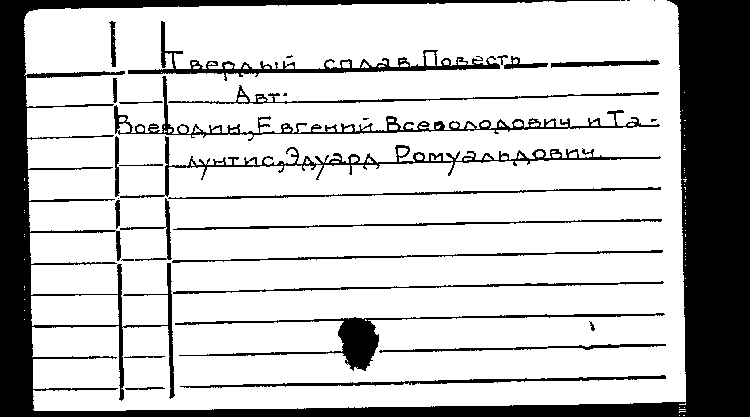 Твердый сплав. Повесть
Авт:
Воеводин, Евгений Всеволодович и Та-
лунтис, Эдуард Ромуальдович.